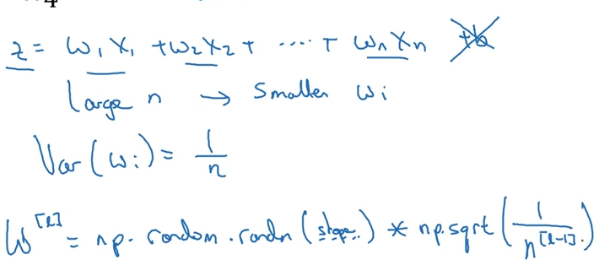 z = w₁x₁ + w₂x₂ + ..... + wₙxₙ +b
Large n → Smaller wᵢ
Var(wᵢ) = 1/n
W^[l] = np.random.randn(shape) * np.sqrt(1/n^[l-1])